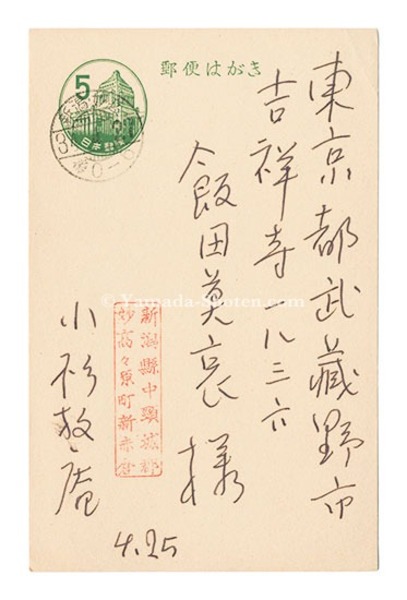 郵便はがき
5
日本郵便
東京都武藏野市
吉祥寺一八三六
飯田莫哀様
新潟縣中頸城郡
妙高々原町新赤倉
小杉放庵
4.25
© Yamada-Shoten.com